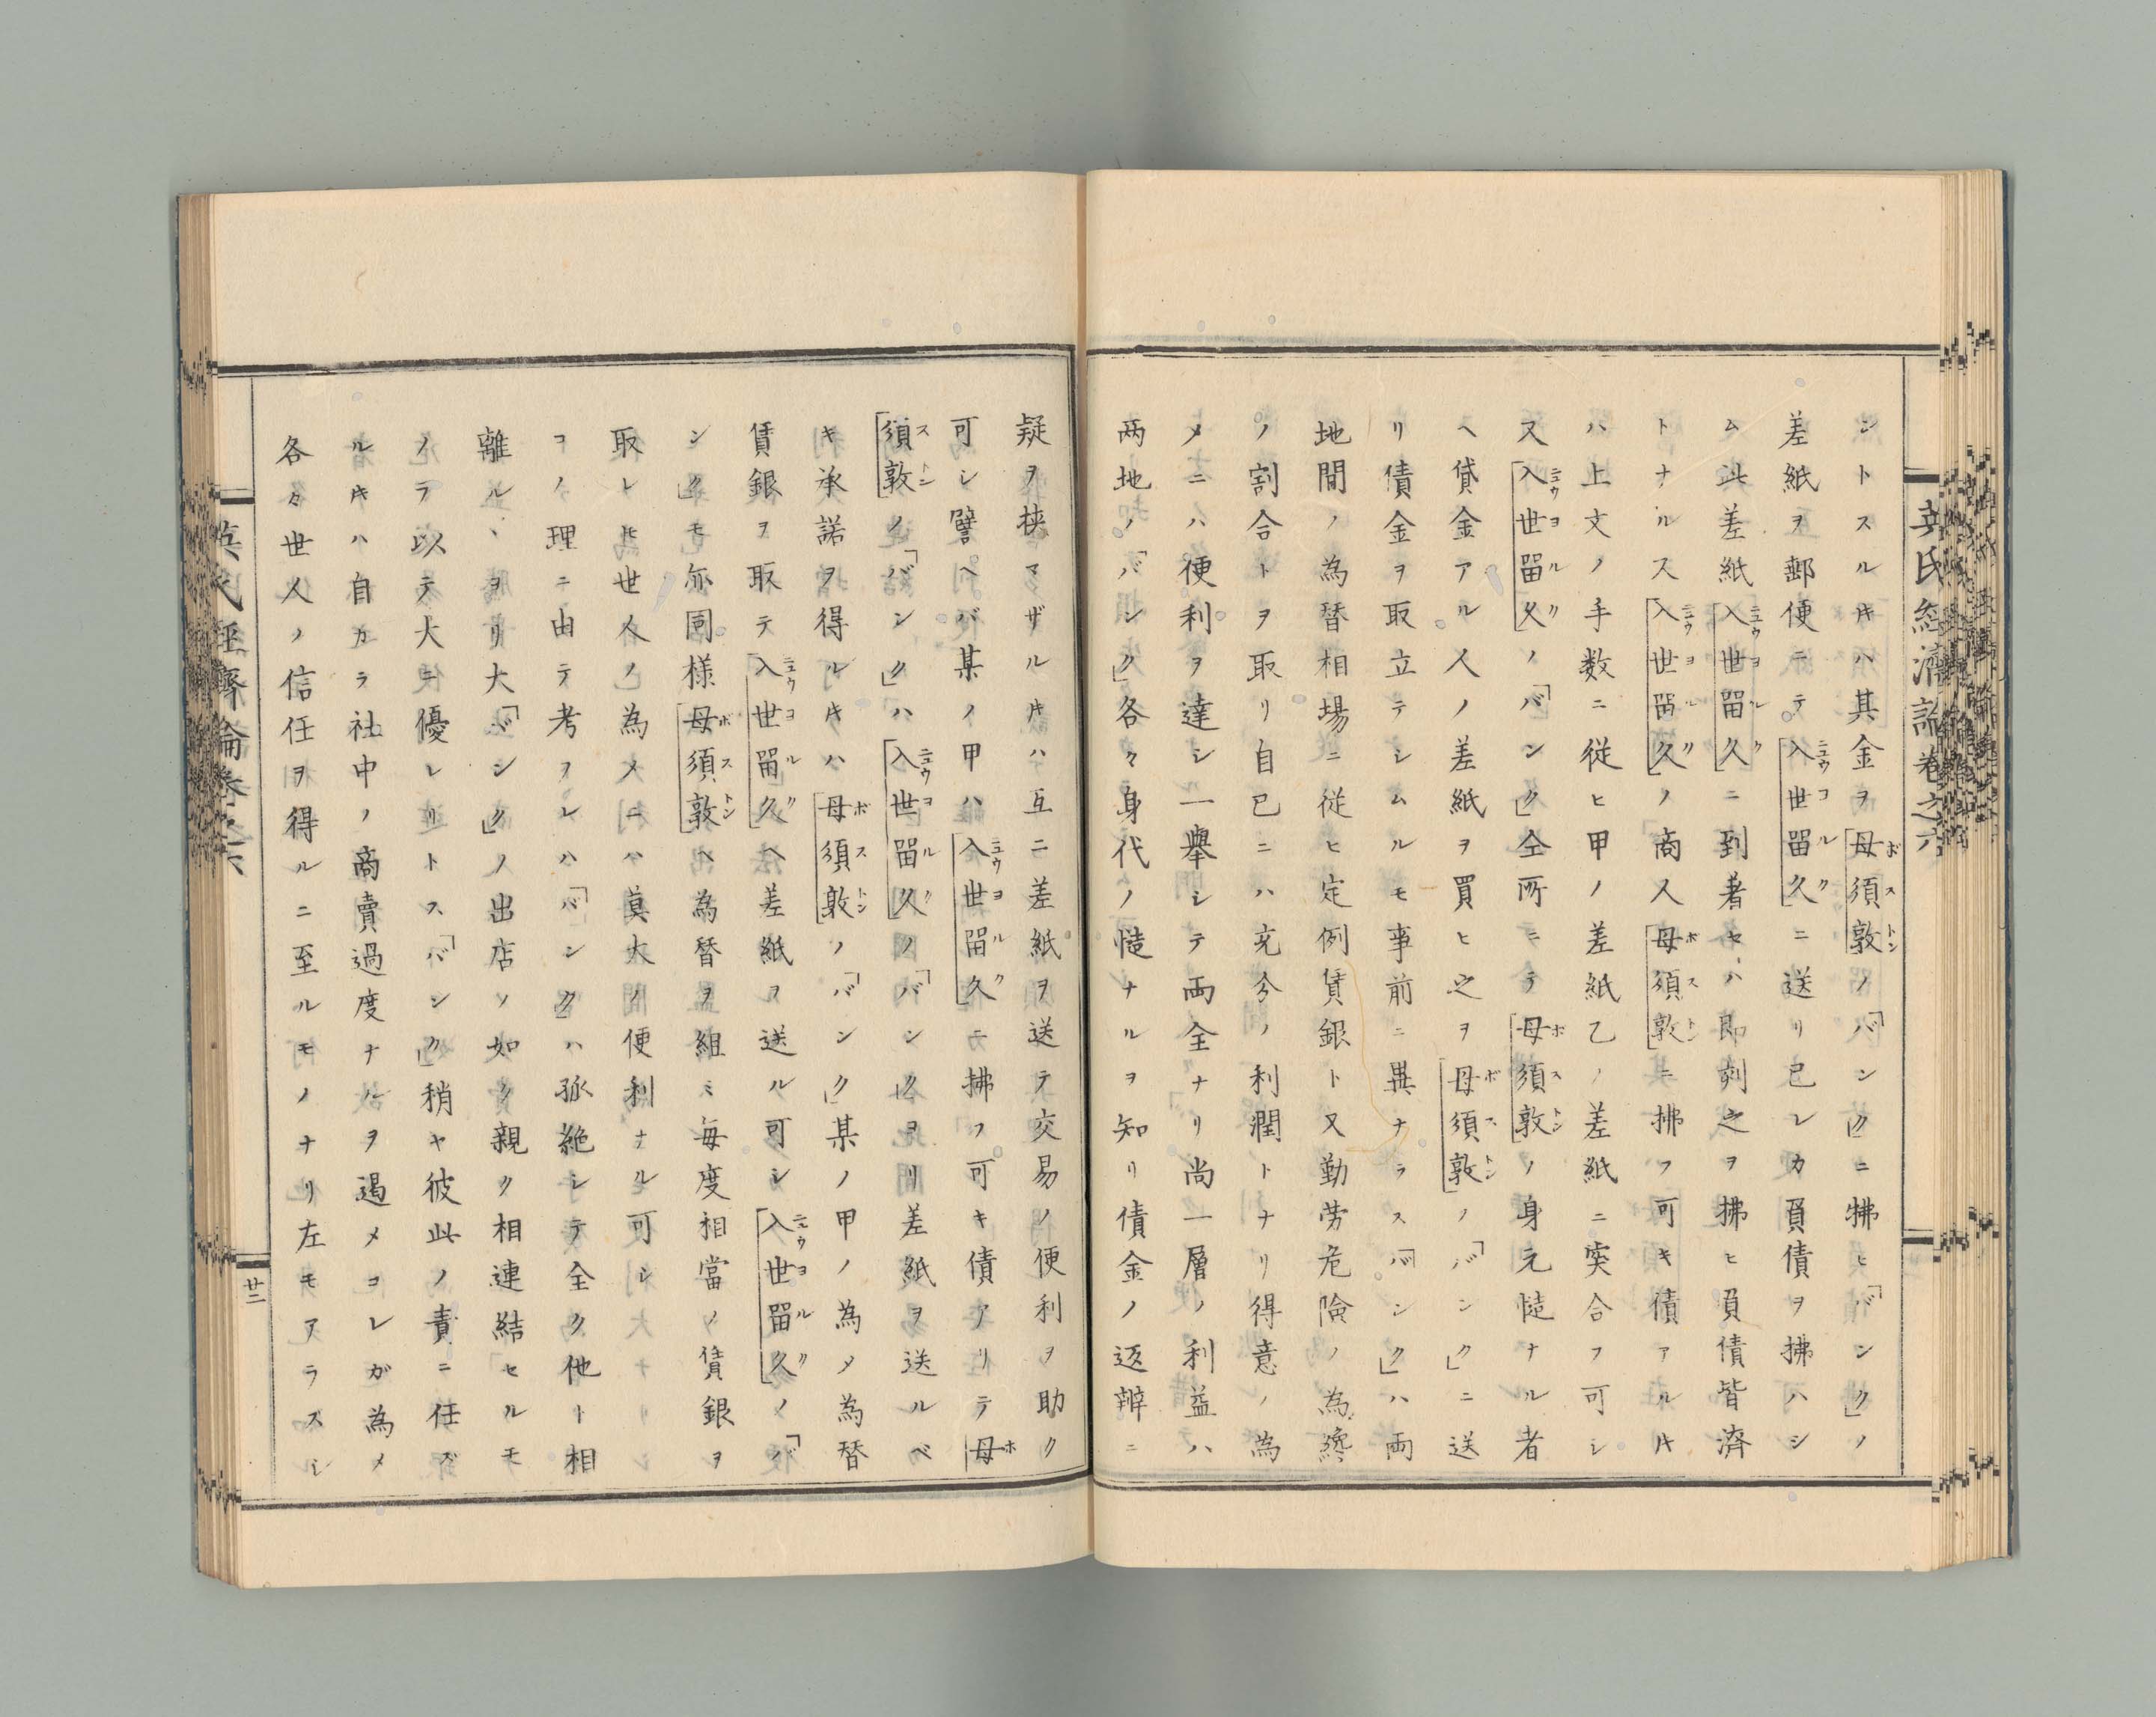 英氏経濟論卷之六
ントスルキハ其金ヲ母須敦ノ「バンク」ニ拂ヒ「バンク」ノ
差紙ヲ郵便ニテ入世留久ニ送リ已レカ負債ヲ拂ハシ
ム此差紙入世留久ニ到著セハ即刻之ヲ拂ヒ負債皆濟
トナルス入世留久ノ商人母須敦ニ拂フ可キ債アルキ
ハ上文ノ手数ニ從ヒ甲ノ差紙乙ノ差紙ニ突合フ可シ
又入世留久ノ「バンク」仝所ニテ母須敦ノ身元慥ナル者
ヘ貸金アル人ノ差紙ヲ買ヒ之ヲ母須敦ノ「バンク」ニ送
リ債金ヲ取立テシムルモ事前ニ異ナラス「バンク」ハ両
地間ノ為替相場ニ從ヒ定例賃銀ト又勤労危険ノ為纔
ノ割合トヲ取リ自已ニハ充分ノ利潤トナリ得意ノ為
メニハ便利ヲ達シ一擧シテ両全ナリ尚一層ノ利益ハ
両地ノ「バンク」各々身代ノ慥ナルヲ知リ債金ノ返辨ニ
疑ヲ挾マザルキハ互ニ差紙ヲ送テ交易ノ便利ヲ助ク
可シ譬ヘバ某ノ甲ハ入世留久ニテ拂フ可キ債アリテ母
須敦ノ「バンク」ハ入世留久ノ「バンク」ヨリ差紙ヲ送ルベ
キ承諾ヲ得ルキハ母須敦ノ「バンク」某ノ甲ノ為メ為替
賃銀ヲ取テ入世留久ヘ差紙ヲ送ル可シ入世留久ノ「バ
ンク」モ亦同様母須敦ヘ為替ヲ組ミ毎度相當ノ賃銀ヲ
取レヒ世人ノ為メニハ莫大ノ便利ナル可シ
コノ理ニ由テ考フレハ「バンク」ハ孤絶シテ全ク他ト相
離ルヽヨリ大「バンク」ノ出店ノ如ク親ク相連結セルモ
ノヲ以テ大ニ優レリトス「バンク」稍ヤ彼此ノ責ニ任ズ
ルキハ自カラ社中ノ商賣過度ナルヲ遏メコレガ為メ
各々世人ノ信任ヲ得ルニ至ルモノナリ左モアラズシ
英氏経齊論卷之六
廿二